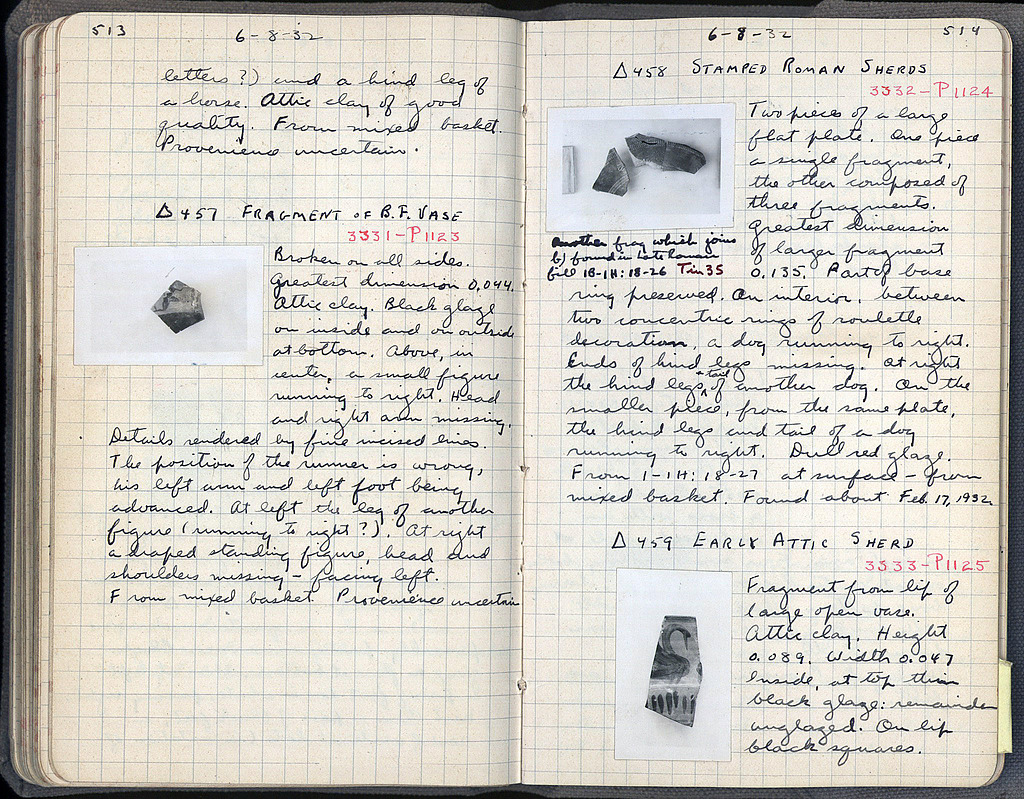 513
6-8-32
letters?) and a hind leg of
a horse. Attic clay of good
quality. From mixed basket.
Provenience uncertain.
Δ457 FRAGMENT OF B.F. VASE
3331-P1123
Broken on all sides.
Greatest dimension 0,044.
Attic clay. Black glaze
on inside and on outside
at bottom. Above, in
center, a small figure
running to right. Head
and right arm missing.
Details rendered by fine incised lines.
The position of the runner is wrong,
his left arm and left foot being
advanced. At left the leg of another
figure (running to right?). At right
a draped standing figure, head and
shoulders missing - facing left.
From mixed basket. Provenience uncertain
6-8-32
514
Δ458 STAMPED ROMAN SHERDS
3332-P1124
Two pieces of a large
flat plate. One piece
a single fragment,
the other composed of
three fragments.
Greatest dimension
of larger fragment
0.135. Part of base
Another frag which joins
b) found in Late Roman
fill 18-1H:18-26 Tin 35
ring preserved. On interior, between
two concentric rings of roulette
decoration, a dog running to right.
Ends of hind legs missing. At right
the hind legs + tail of another dog. On the
smaller piece, from the same plate,
the hind legs and tail of a dog
running to right. Dull red glaze.
From 1-1H:18-27 at surface - from
mixed basket. Found about Feb. 17, 1932
Δ459 EARLY ATTIC SHERD
3333-P1125
Fragment from lip of
large open vase.
Attic clay. Height
0.089. Width 0.047
Inside, at top thin
black glaze: remainder
unglazed. On lip
black squares.